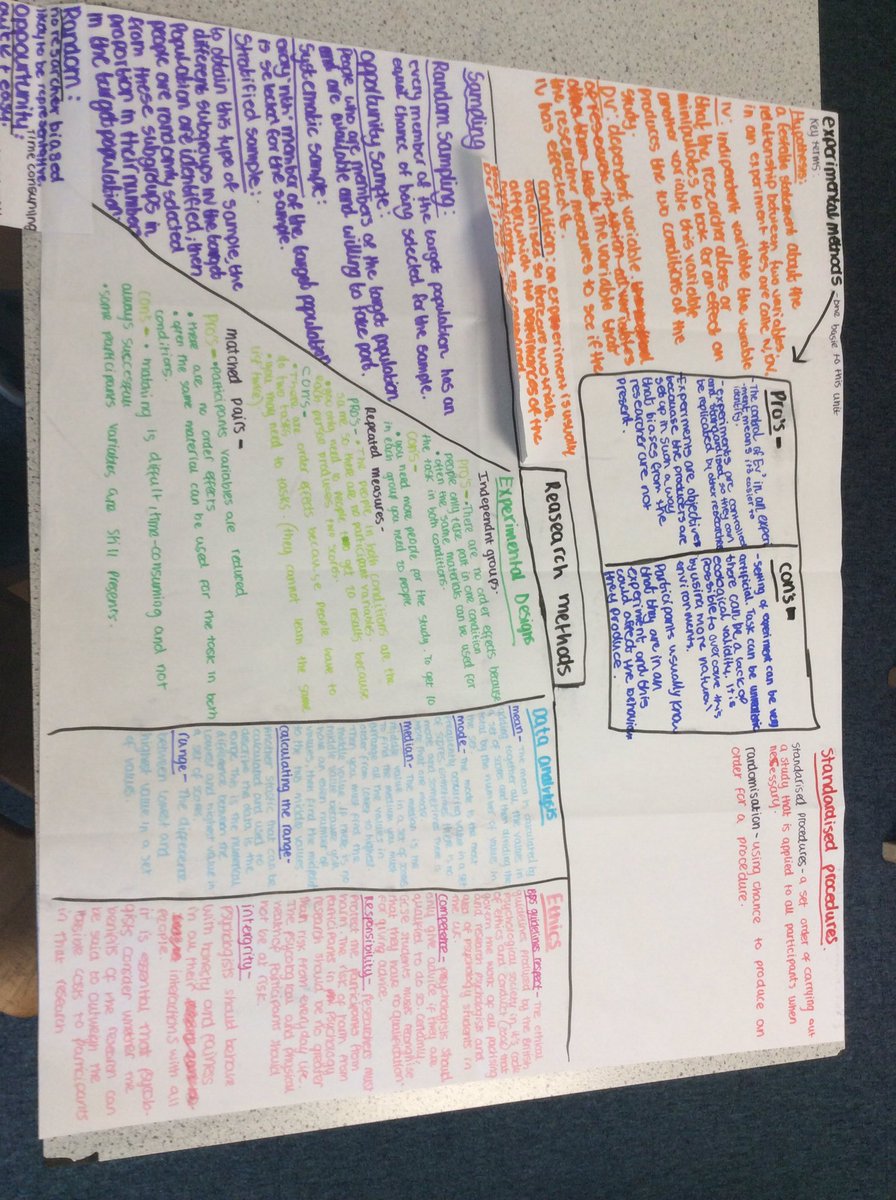 experimental methods - one basic to this unit
Key terms:
Hypothesis:
a testable statement about the
relationship between two variables,
in an experiment these are called IV, DV.
IV: indipendent variable the variable
that the researcher alters or
manipulates to look for an effect on
another variable this variable
produces the two conditions of the
study.
DV: dependent variable
The variable that
the researcher measures to see if the
IV has effected it.
condition: an experiment is usually
organised so there are two trials
after which the performances of the
Pro's -
- The control of EV' in an exper
iment means its easier to
identify.
- experiments are controlled
and standardised so they can
be replicated by other researches
- Experiments are objective
because the producers are
set up in such a way
that biases from the
researcher are not
present.
con's -
- Setting of experiment can be very
artificial. Task can be unrealistic
there can be a lack of
ecological validity. It is
possible to overcome this
by using more natural
environments.
Participants usually know
that they are in an
experiment and this
could affect the behaviour
they produce.
Standardised procedures.
standarised procedures - a set order of carrying out
a study that is applied to all participants when
necessary.
randomisation - using chance to produce an
order for a procedure.
Reasearch methods
Sampling
Random sampling:
every member of the target population has an
equal chance of being selected for the sample.
opportunity sample:
People who are members of the target population
and are available and willing to take part.
Systematic sample:
every 'nth' member of the target population
is selected for the sample.
Stratified sample:
to obtain this type of sample, the
different subgroups in the target
Population are identified; then
people are randomly selected
from these subgroups in
proportion to their numbers
in the target population.
Random:
no researcher biased
way to be representative
time consuming
opportunity:
quite + easy
Experimental Designs
Independnt groups.
Pro's - There are no order effects because
people only take part in one condition
• often the same materials can be used for
the task in both conditions.
cons -
• you need more people for the study. To get 10
in each group you need 20 people
Repeated measures -
PROS - • The people in both conditions are the
same so there are no participant variables.
• you only need 10 people to get 20 results because
each person produces two scores.
cons -
• There are order effects because people have to
do two tasks.
• you may need two tasks (they cannot learn the same
list twice).
matched pairs -
Pros - • participants variables are reduced
• there are no order effects
• often the same material can be used for the task in both
conditions.
cons - • matching is difficult/time-consuming and not
always successful
• some participants variables are still present.
Data analysis
mean - The mean is calculated by
adding together all the values in
a set of scores and then dividing the
total by the number of values in
mode - The mode is the most
frequently occurring value in a set
of scores.
median - The median is the
middle value in a set of scores.
calculating the range -
another statistic that can be
calculated and used to
describe the data is the
range. This is the numerical
difference between the
lowest and highest value in
a set of scores.
range - The difference
between lowest and
highest value in a set
of values
Ethics
BPS guidelines respect - The ethical
guidelines produced by the British
Psychological society in it's code
of ethics and conduct (2009) that
govern the work of all practising
and research psychologists and
also of psychology students in
the UK
competence - psychologists should
only give advice if they are
qualified to do so. Certainly,
GCSE students must recognise
that they have no qualification
for giving advice.
Responsibility - Researchers must
protect their participants from
harm. The risk of harm from
participants in Psychology
research should be no greater
than risk from everyday life.
The psychological and physical
health of participants should
not be at risk.
intergrity -
Psychologists should behave
with honesty and fairness
in all their interactions with all
people.
it is essential that psycholo-
gists consider whether the
benefits of the research can
be said to outweigh the
possible costs to participants
in that research